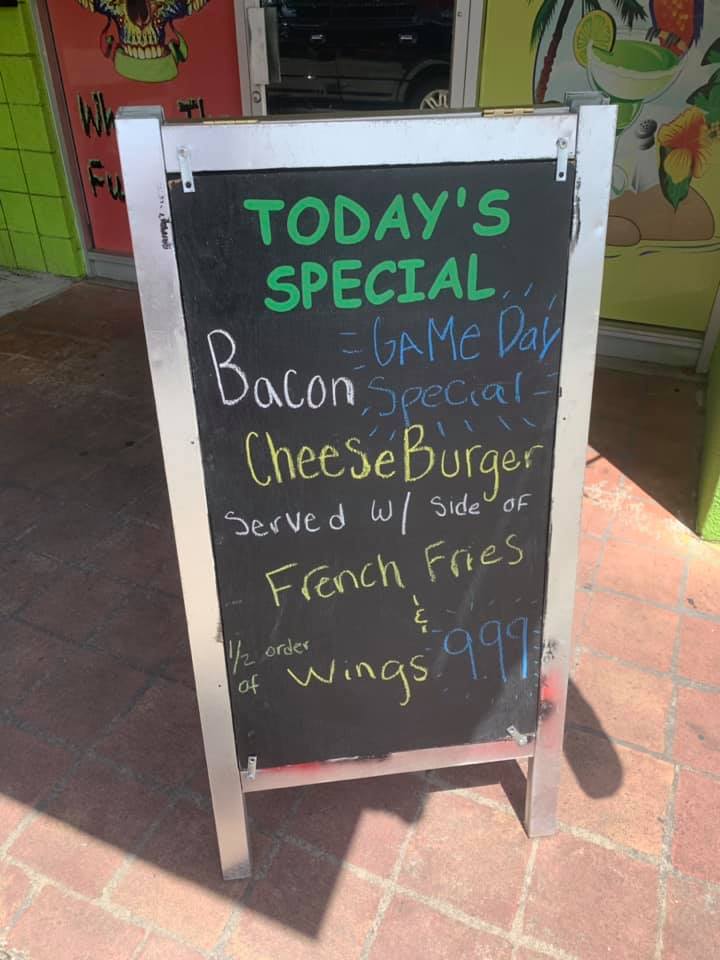 TODAY'S
SPECIAL
GAMe Day
Special
Bacon
CheeSeBurger
Served w/ Side OF
French Fries
&
1/2 order
of Wings 999